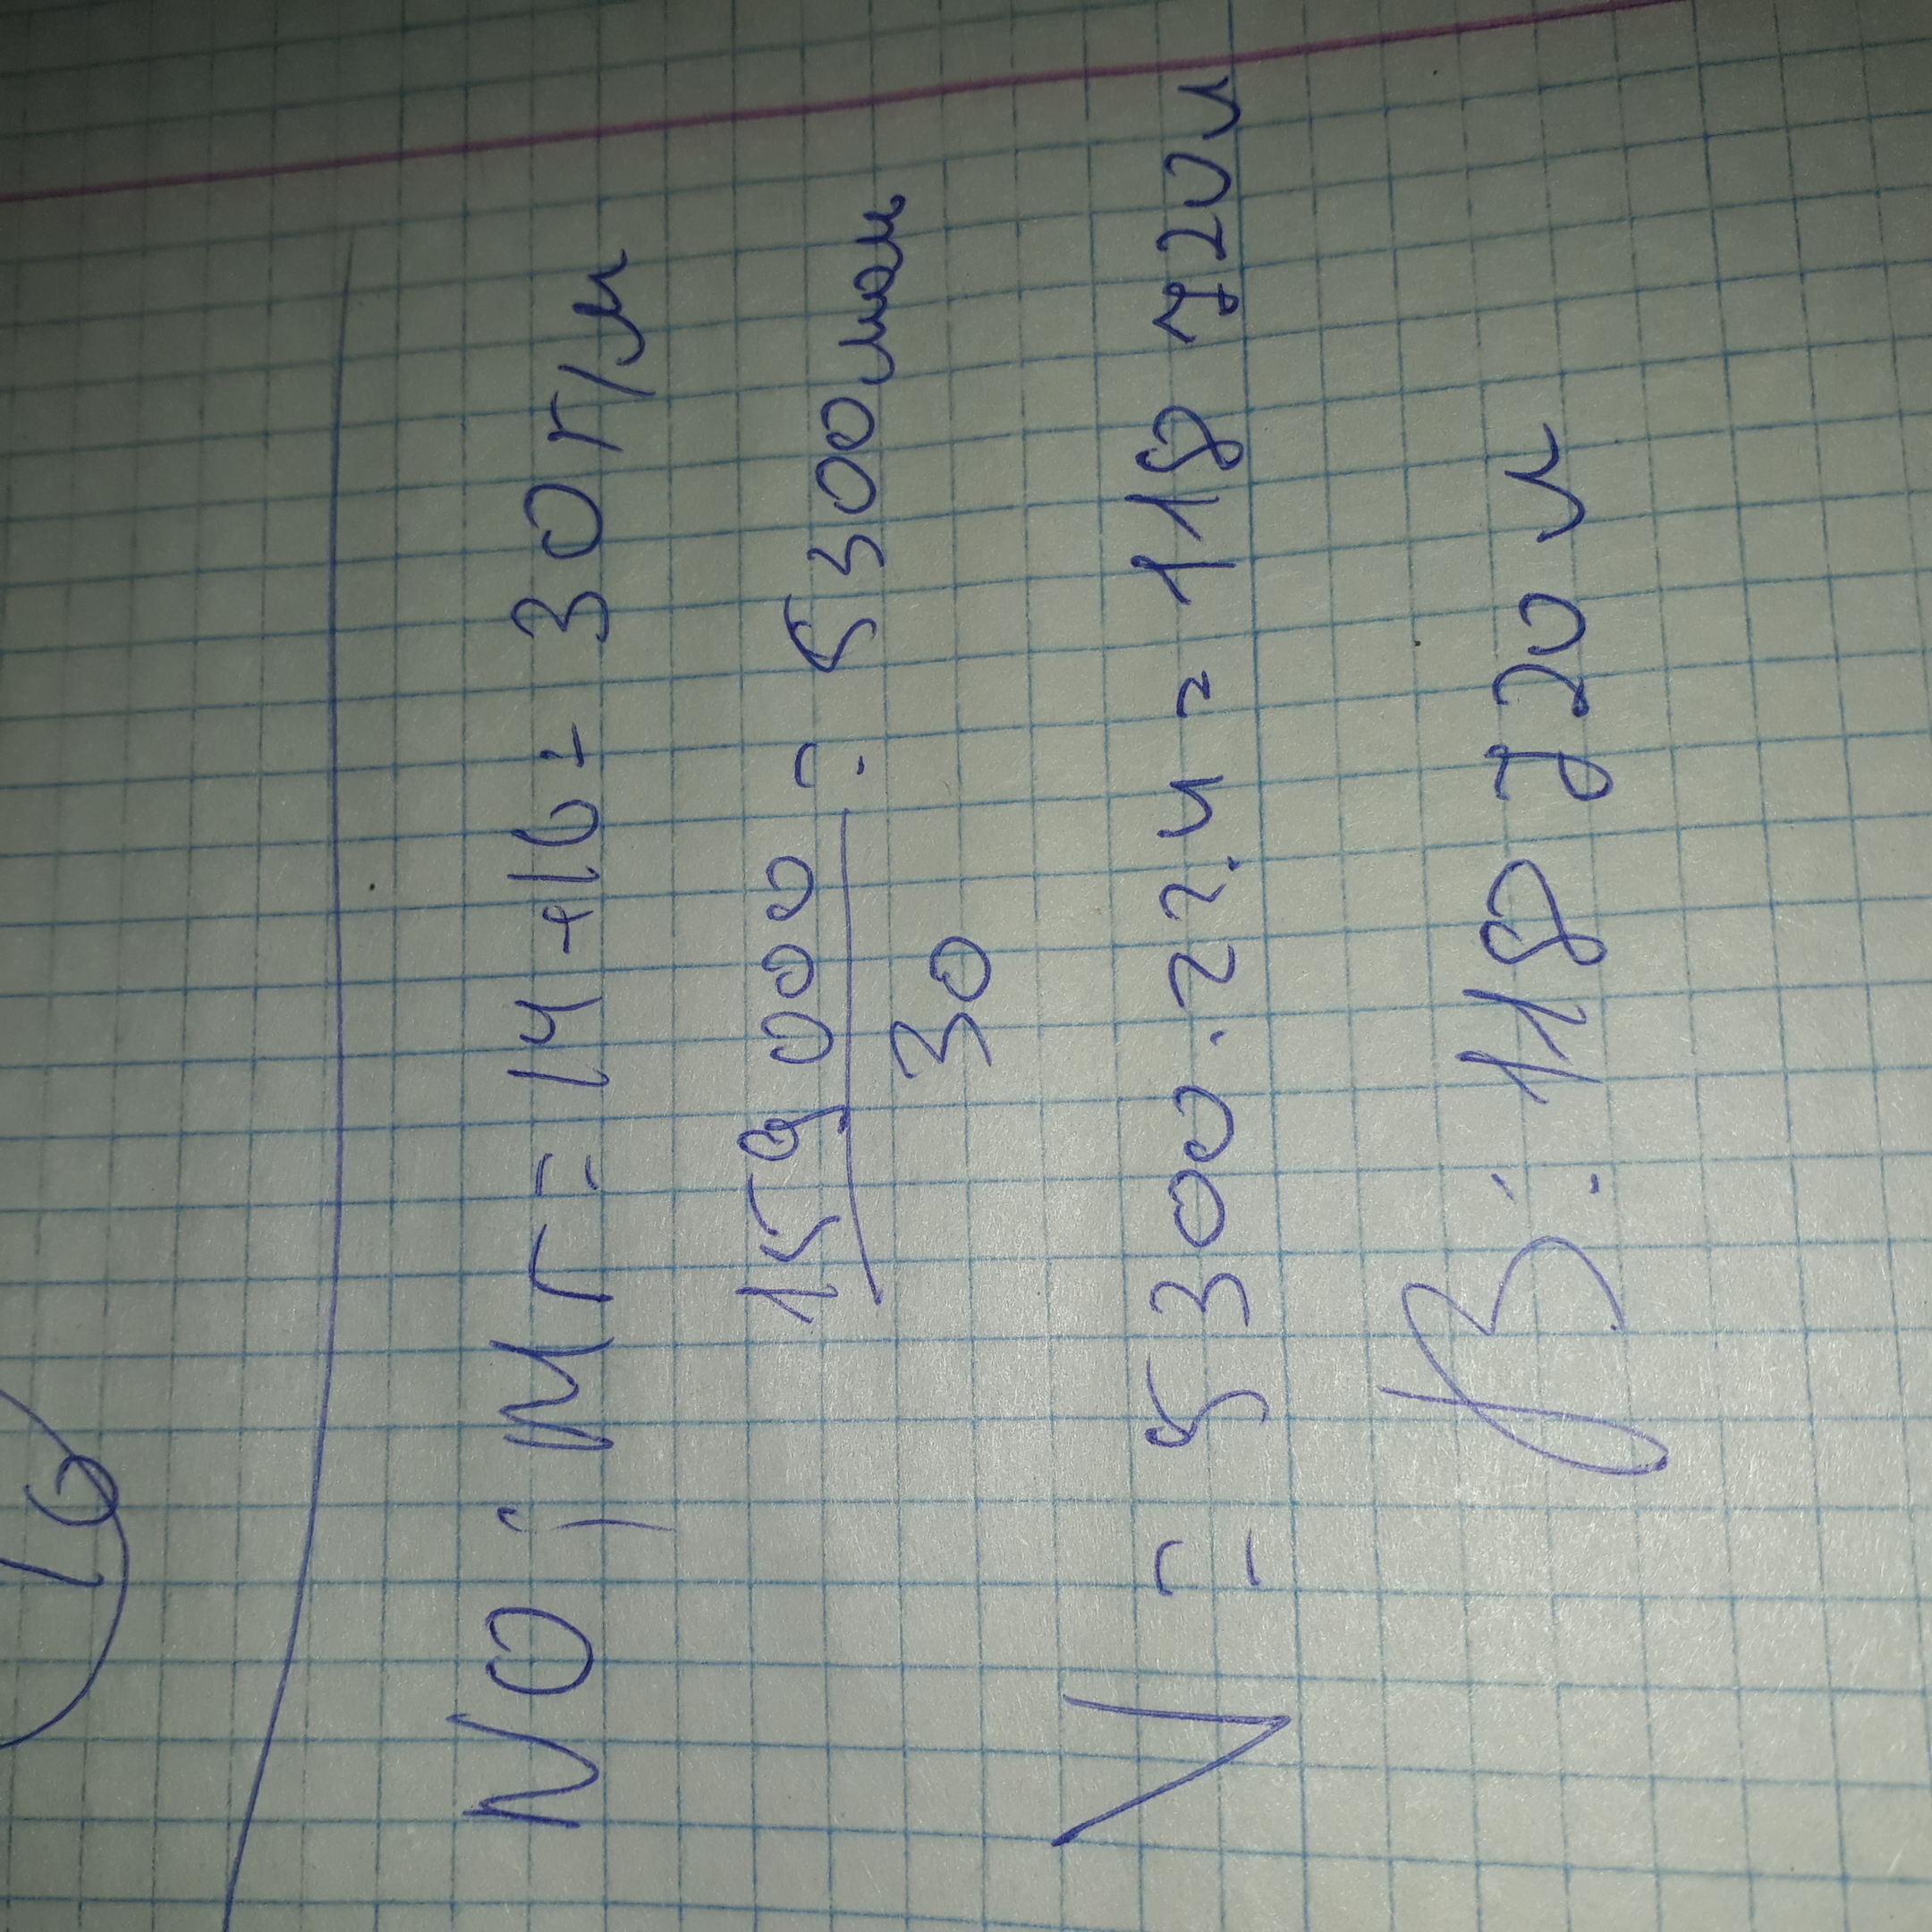 16
NO; Mr = 14+16 = 30 г/м
159 000
30
= 5300 моль
V = 5300 · 22.4 = 118 720 л
В: 118 720 л